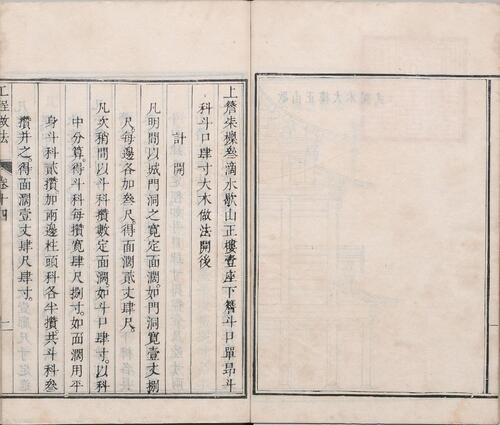 上簷柒檩叄滴水歇山正樓壹座下簷斗口單昂斗
科斗口肆寸大木做法開後
計開
凡明間以城門洞之寬定面濶如門洞寬壹丈捌
尺每邊各加叄尺得面濶貳丈肆尺
凡次稍間以斗科攢數定面濶如斗口肆寸以科
中分算得斗科每攢寬肆尺捌寸如面濶用平
身斗科貳攢加兩邊柱頭科各半攢共斗科叄
攢并之得面濶壹丈肆尺肆寸
工程做法
卷十四
一